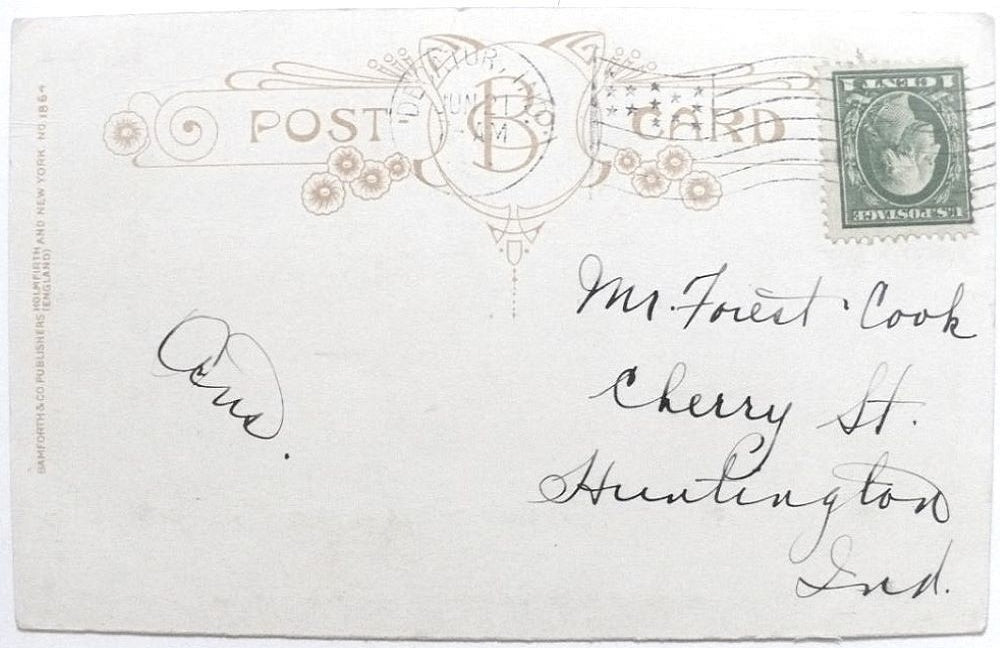 POST CARD
DECATUR, IND.
JUN 21
- AM
CB
U.S. POSTAGE
1 CENT 1
BAMFORTH & CO. PUBLISHERS HOLMFIRTH AND NEW YORK. NO. 1864
(ENGLAND)
Mr. Forest Cook
Cherry St.
Huntington
Ind.
Ans.